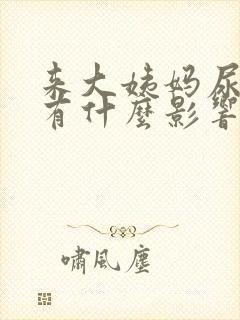 来大姨妈尿
有什麼影響
嘯風塵